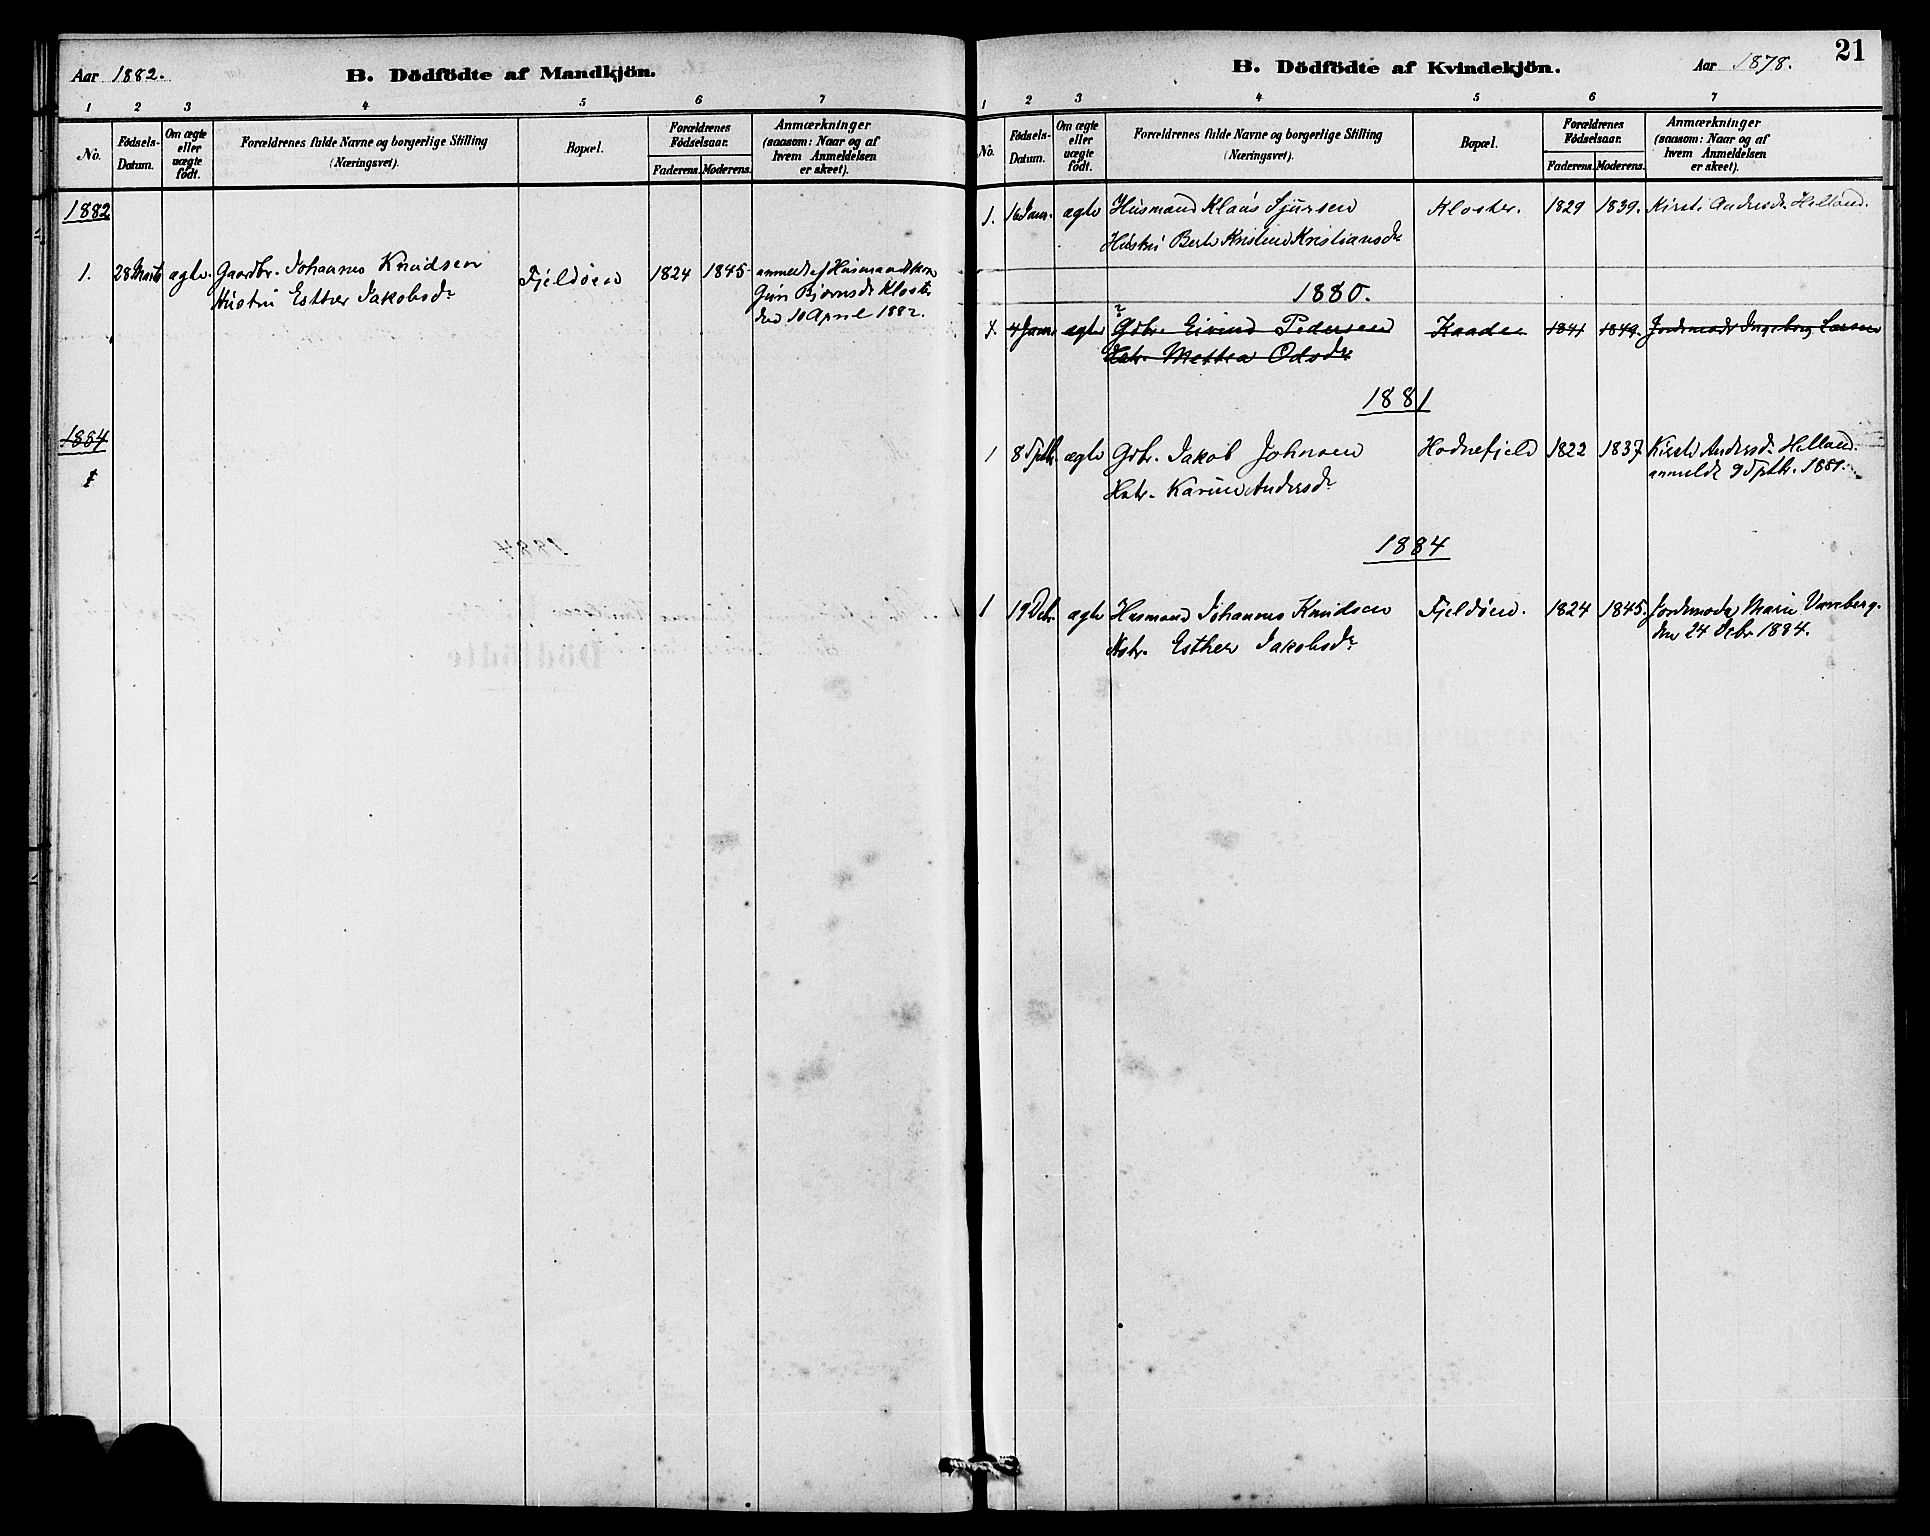 Aar 1882.
B. Dödfödte af Mandkjön.
1 2 3 4 5 6 7
No.
Födsels-Datum.
Om ægte eller uægte födt.
Forældrenes fulde Navne og borgerlige Stilling
(Næringsvei).
Bopæl.
Forældrenes Födselsaar.
Faderens. Moderens.
Anmærkninger
(saasom: Naar og af
hvem Anmeldelsen
er skeet).
1882
1. 28 Marts ægte. Gaardbr. Johannes Knudsen Fjeldøen 1824 1845 anmeldt af Husmandskone
Hustru Esther Jakobsdr Guri Bjørnsdr Kloster
den 10 April 1882.
1884
1
21
B. Dödfödte af Kvindekjön.
Aar 1878.
1 2 3 4 5 6 7
No.
Födsels-Datum.
Om ægte eller uægte födt.
Forældrenes fulde Navne og borgerlige Stilling
(Næringsvei).
Bopæl.
Forældrenes Födselsaar.
Faderens. Moderens.
Anmærkninger
(saasom: Naar og af
hvem Anmeldelsen
er skeet).
1. 16 Janr. ægte Husmand Klaus Sjursen Kloster. 1829 1839. Kirsti Andersdr Helland.
Hustru Berte Kristine Kristiansdr
1880.
1. 4 Janr ægte Gdbr. Eivind Pedersen Kaaden 1841 1849. Jordemoder Ingeborg Larsen
Hstr. Mettea Odsdr
1881
1 8 Sptbr. ægte Gdbr. Jakob Johnsen Hodnefjeld 1822 1837 Kirsti Andersdr. Helland.
Hstr. Karine Andersdr anmeldt 9 Sptbr. 1881.
1884
1 19 Debr. ægte Husmand Johannes Knudsen Fjeldøen. 1824 1845. Jordemoder Marie
Hstr. Esther Jakobsdr. den 24 Debr 1884.